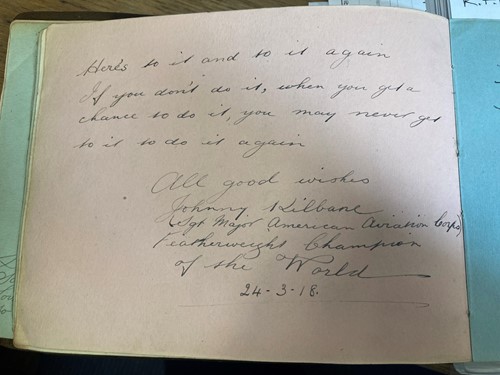 Here's to it and to it again
If you don't do it, when you get a
chance to do it, you may never get
to it to do it again
All good wishes
Johnny Kilbane
(Sgt Major American Aviation Corps)
Featherweight Champion
of the World
24-3-18.